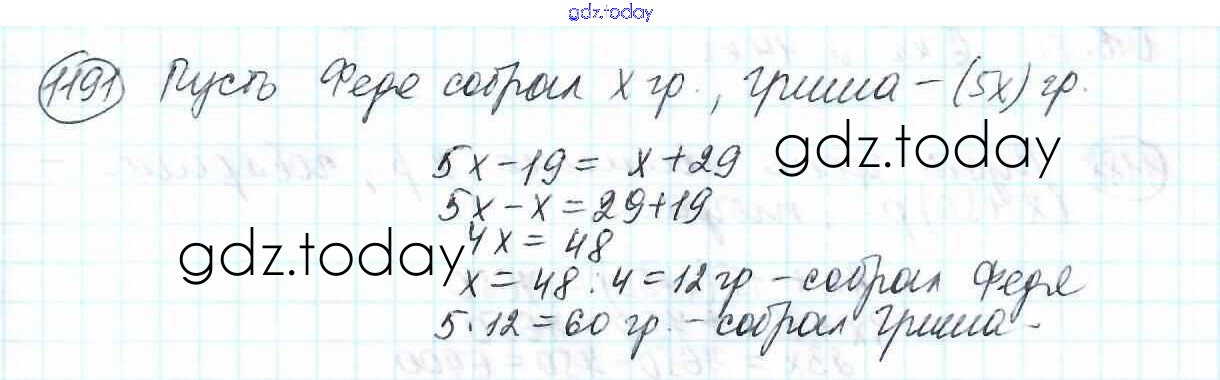 gdz.today
1191 Пусть Федя собрал x гр., Гриша - (5x) гр.
5x - 19 = x + 29
gdz.today
5x - x = 29 + 19
4x = 48
gdz.today
x = 48 : 4 = 12 гр - собрал Федя
5 · 12 = 60 гр. - собрал Гриша -